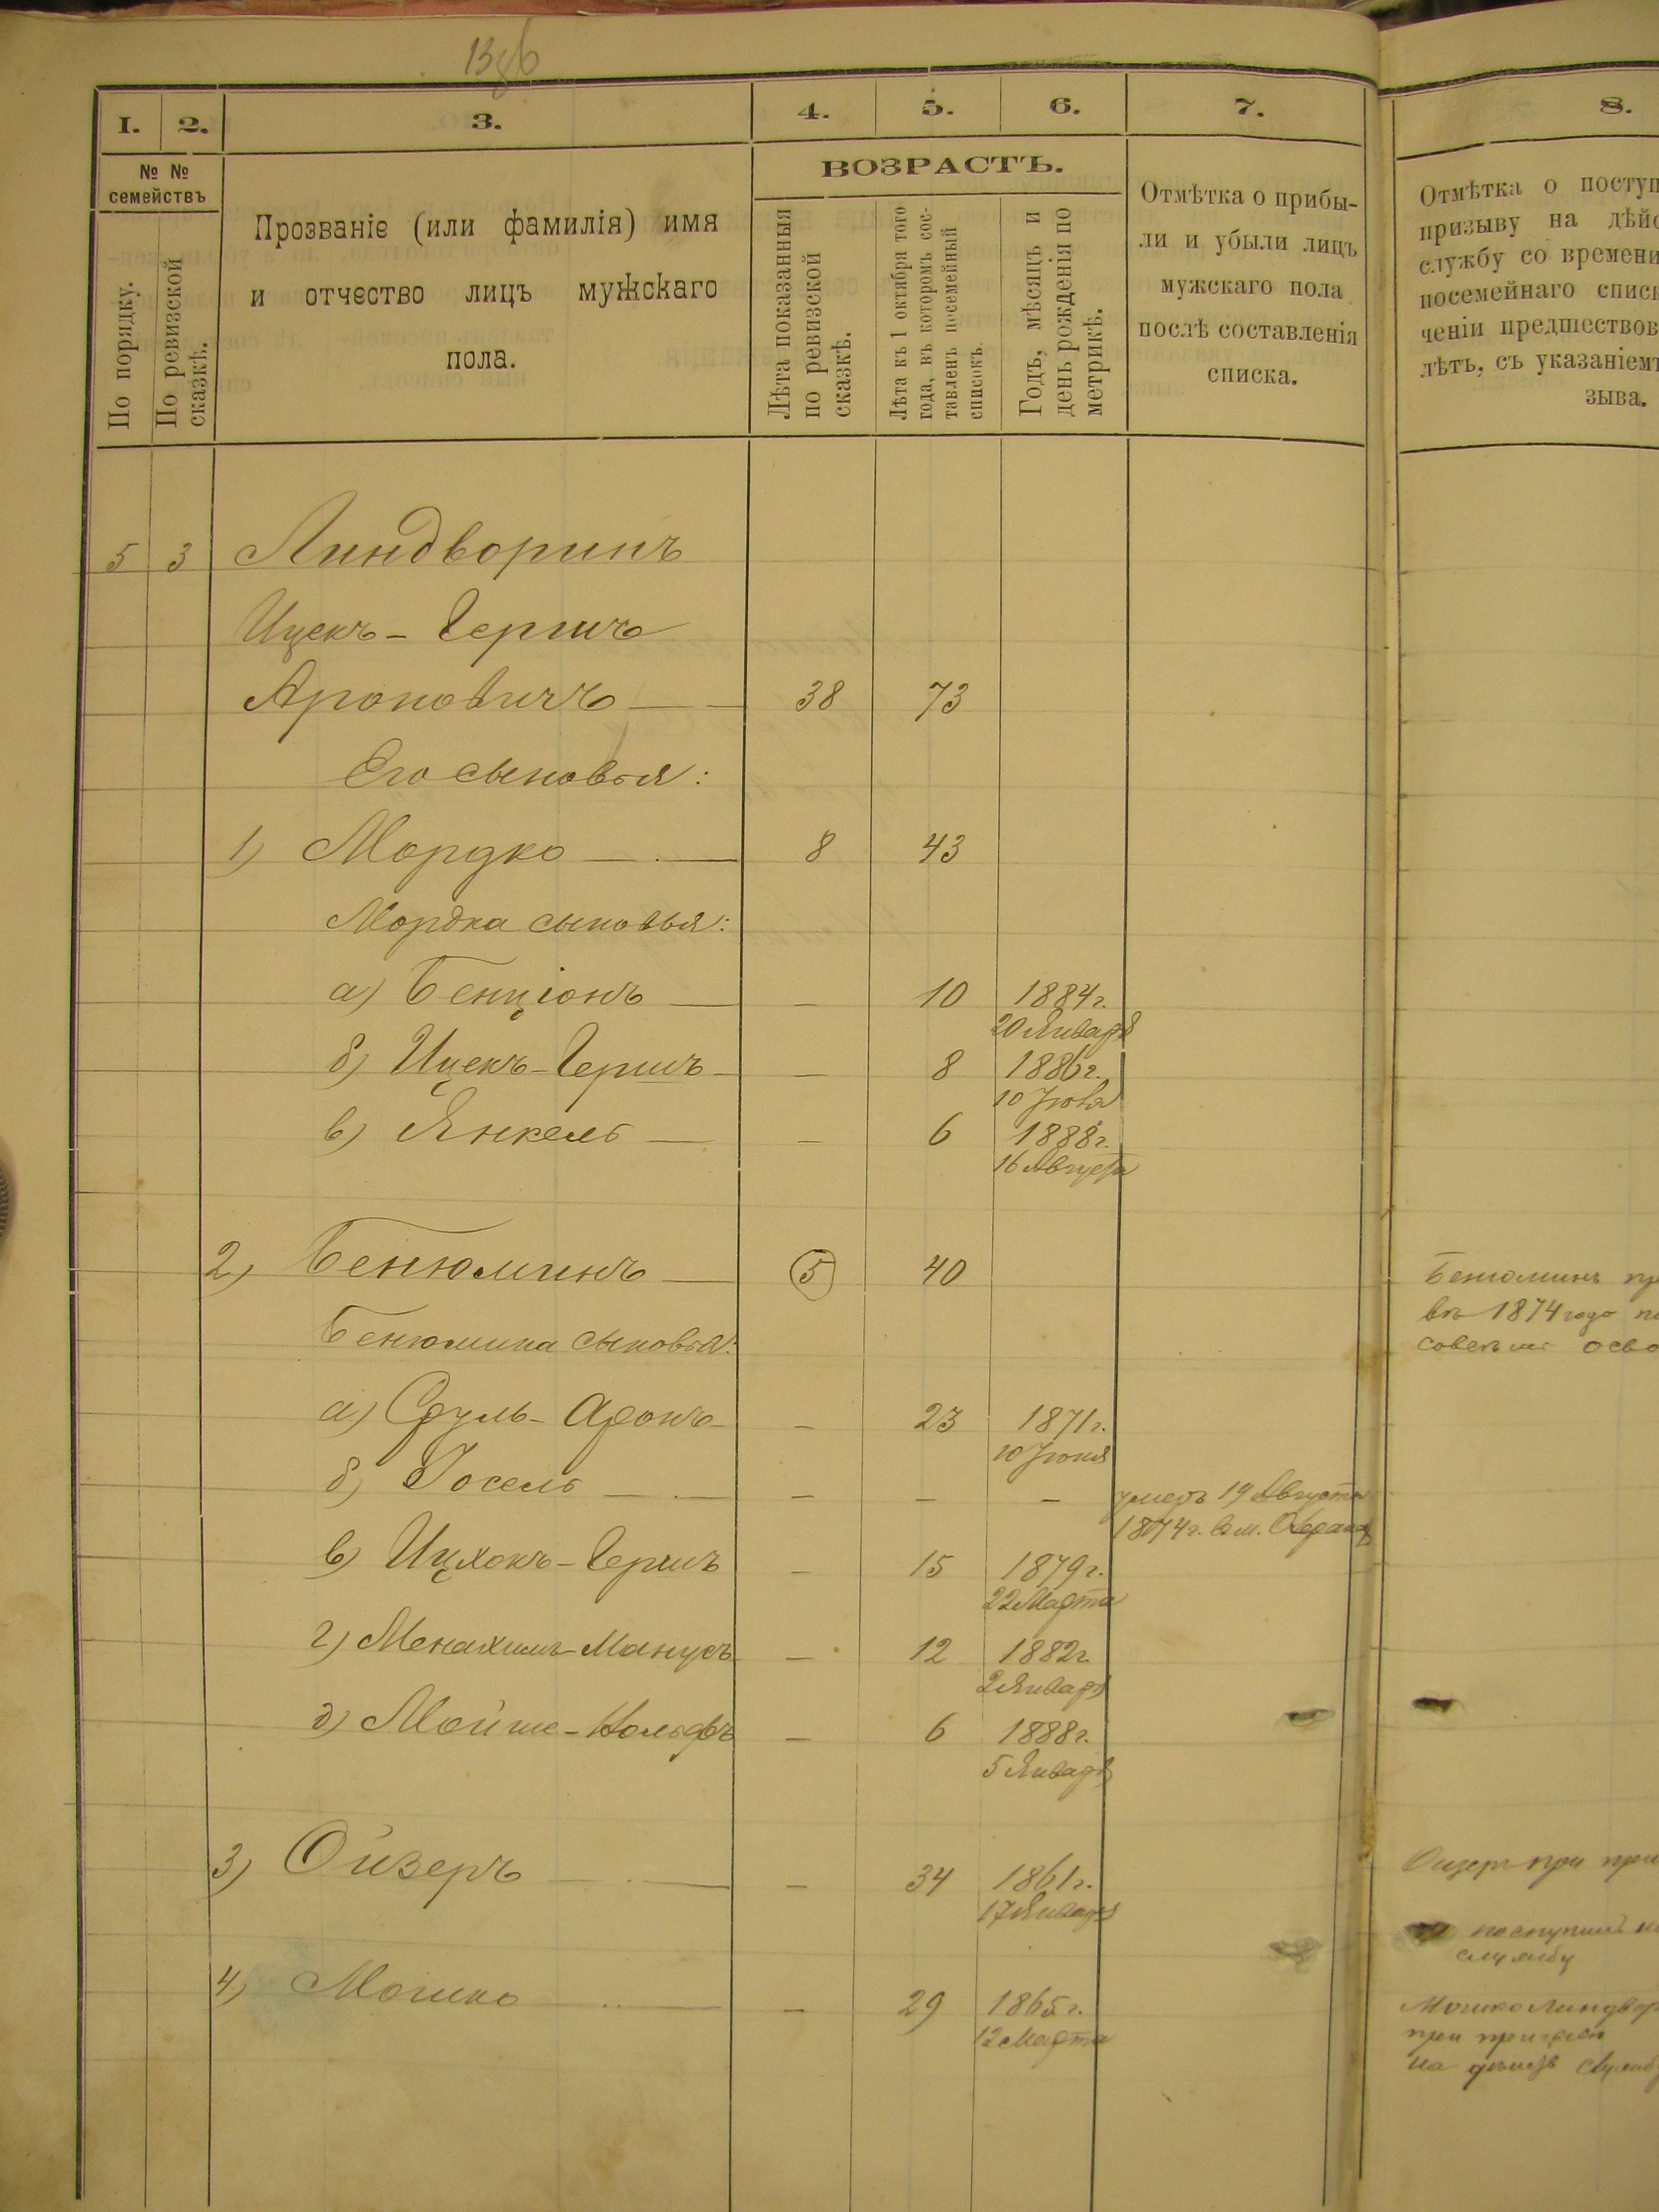 1386
1. 2. 3. 4. 5. 6. 7. 8.
№ №
семействъ
По порядку.
По ревизской
сказкѣ.
Прозваніе (или фамилія) имя
и отчество лицъ мужскаго
пола.
ВОЗРАСТЪ.
Лѣта показанныя
по ревизской
сказкѣ.
Лѣта къ 1 октября того
года, въ которомъ сос-
тавленъ посемейный
списокъ.
Годъ, мѣсяцъ и
день рожденія по
метрикѣ.
Отмѣтка о прибы-
ли и убыли лицъ
мужскаго пола
послѣ составленія
списка.
Отмѣтка о поступ
призыву на дѣйс
службу со времени
посемейнаго списк
ченіи предшествов
лѣтъ, съ указаніемъ
зыва.
5 3 Линдворинъ
Ицекъ-Гершъ
Ароновичъ 38 73
Его сыновья:
1) Мордко 8 43
Мордка сыновья:
а) Бенціонъ — 10 1884г.
20 Января
б) Ицекъ-Гершъ — 8 1886г.
10
в) Янкель — 6 1888г.
16 Августа
2) Бенюминъ 5 40 Бенюминъ
въ 1874 году
Бенюмина сыновья:
а) Сруль-Аронъ — 23 1871г.
10 Іюня
б) Іосель — — — умеръ 19 Августа
1874г. в м.
в) Ицхокъ-Гершъ — 15 1879г.
22 Марта
г) Менахимъ-Манусъ — 12 1882г
2 Января
д) Мойше-Вольфъ — 6 1888г.
5 Января
3) Ойзеръ — 34 1861г. Ойзеръ при
17 Января
поступилъ
службу
4) Мошко — 29 1865г. Мошко Линдвор
12 Марта при
на службу